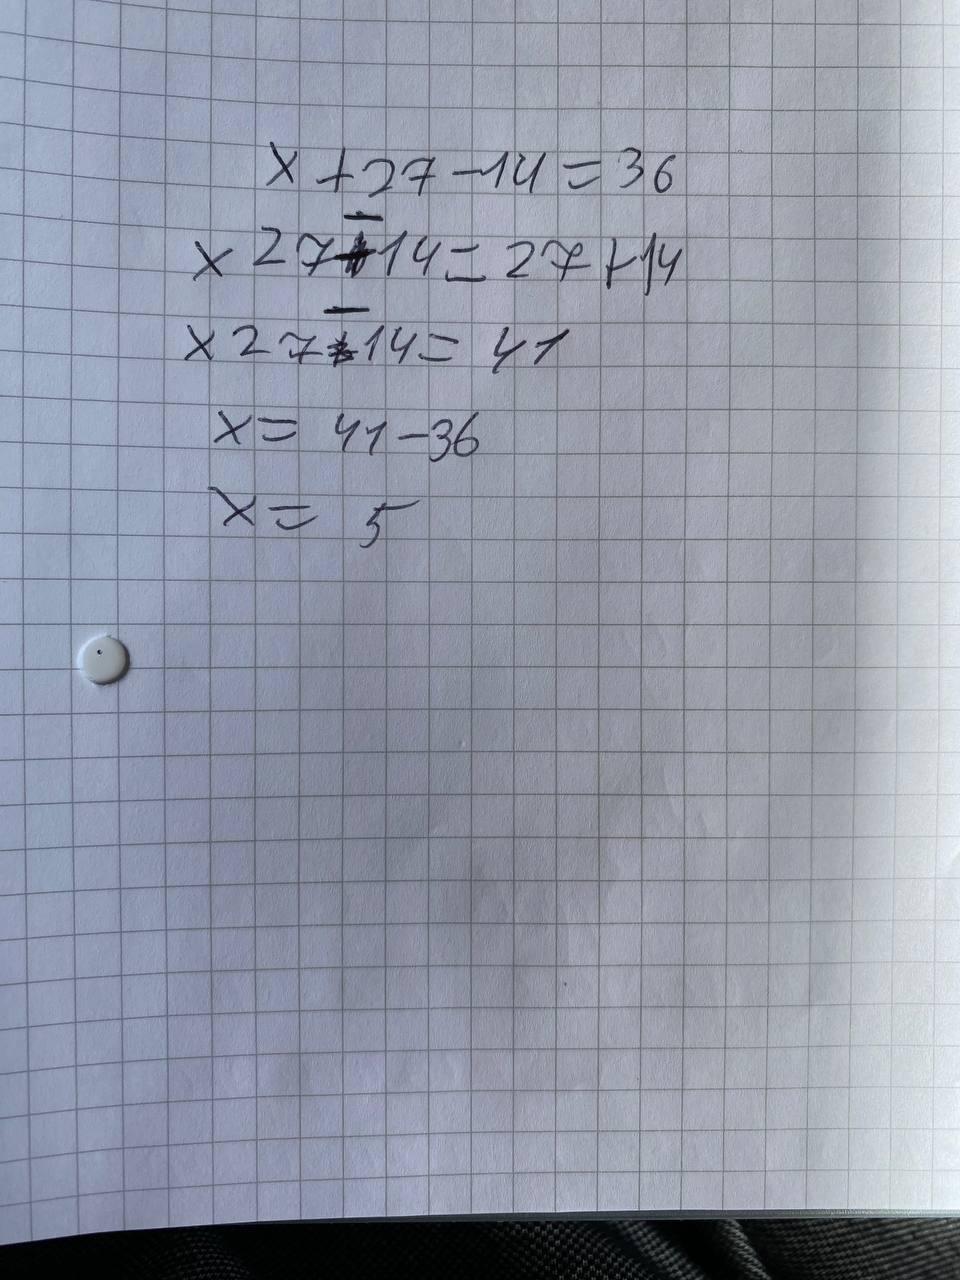 x + 27 - 14 = 36
x 27 - 14 = 27 + 14
x 27 - 14 = 41
x = 41 - 36
x = 5